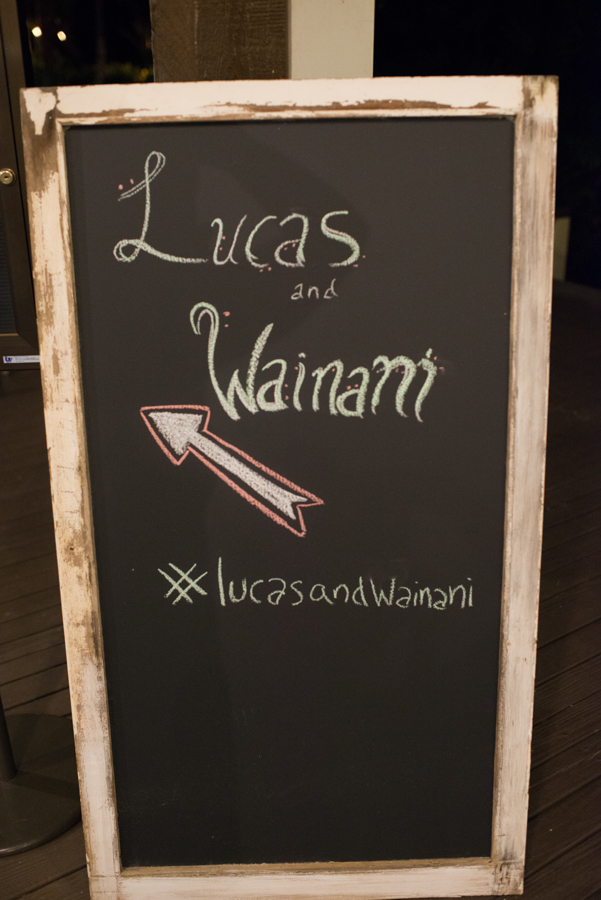 Lucas
and
Wainani
#lucasandWainani